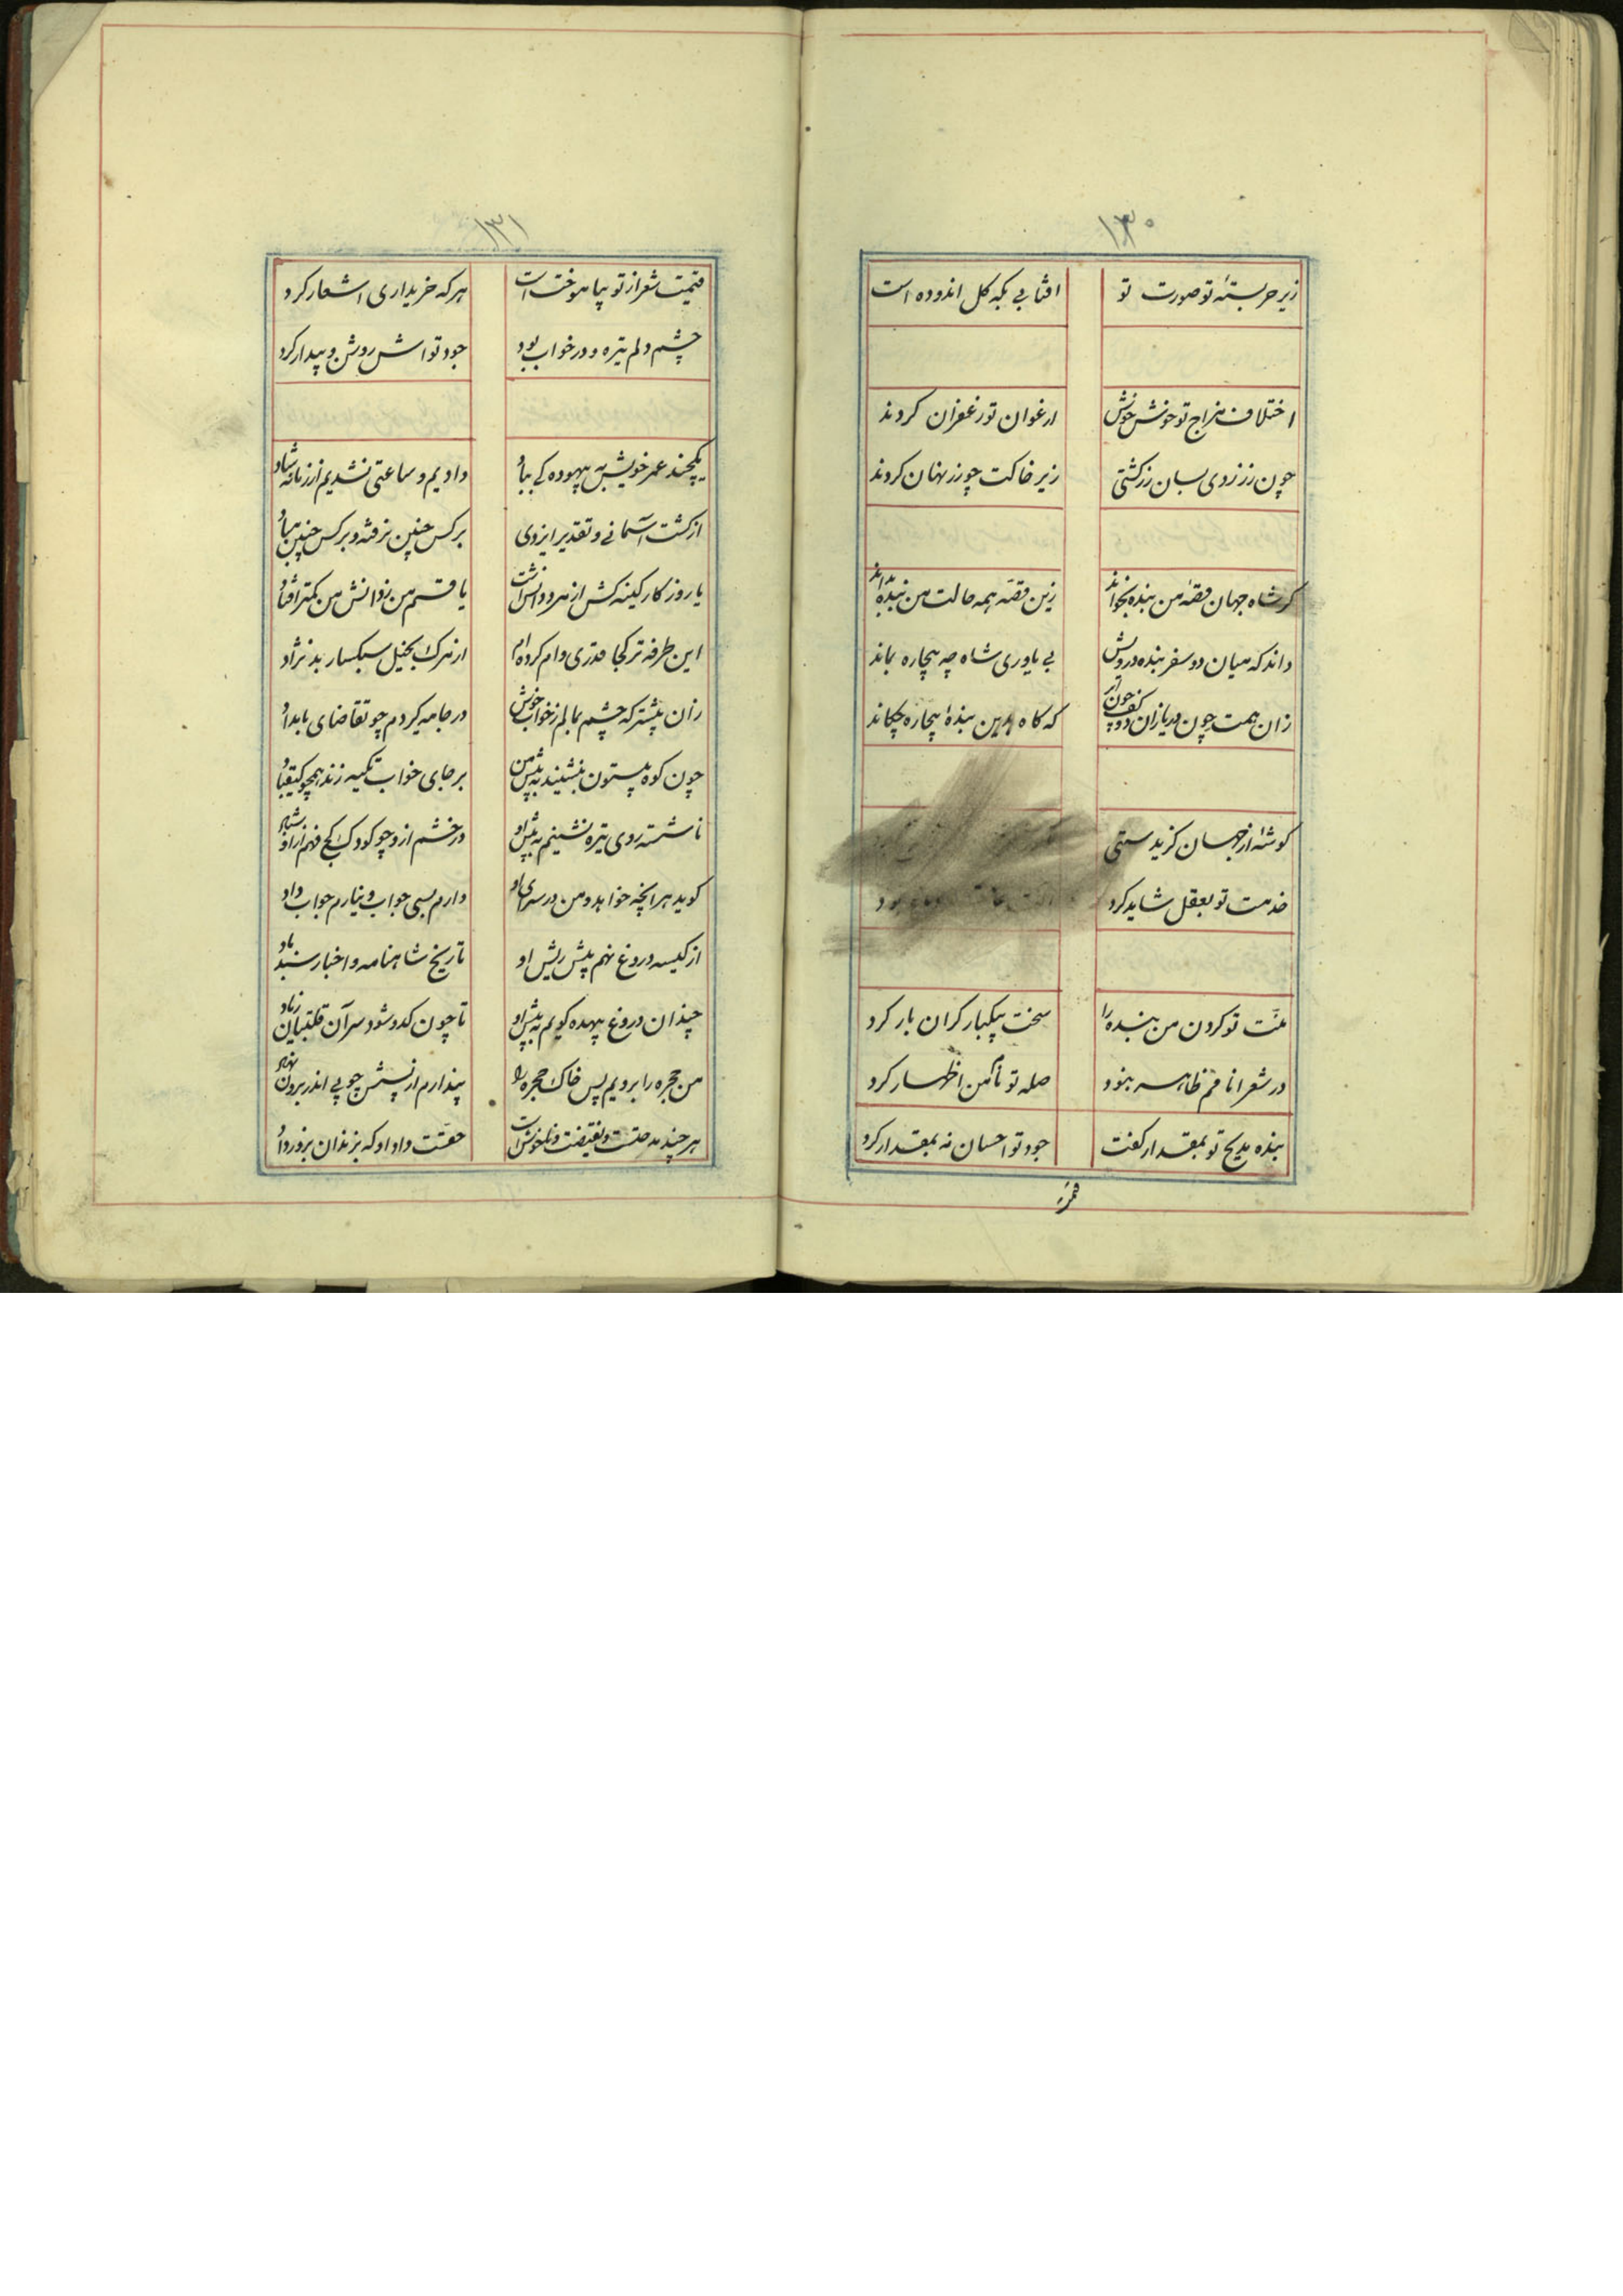 ۱۳۰
زیر حر بستهٔ تو صورت تو افتابی بکه کل اندوده است
اختلاف مزاج تو خوش خوش ارغوان تو زعفران کردند
چون زر زردی بسان زر کشتی زیر خاکت چو زر نهان کردند
کر شاه جهان قصهٔ من بنده بخواند زین قصه همه حالت من بنده بداند
داند که میان دو سفر بنده درویش بی یاوری شاه چه بیچاره بماند
زان همت چون دریا زان دو کف چون ابر که کاه بر این بندهٔ بیچاره چکاند
کوشهٔ از جهان کزید ستمی
خدمت تو بعقل شاید کرد بود
منت تو کردن من بنده را سخت بیکبار کران بار کرد
در شعر انا قم ظاهر نبود صلهٔ تو نام من اظهار کرد
بنده مدیح تو بمقدار کفت جود تو احسان نه بمقدار کرد
قیمت
۱۳۱
قیمت شعر از تو بیاموخت است هر که خریداری اشعار کرد
چشم دلم تیره و در خواب بود جود تواش روشن و بیدار کرد
یکچند عمر خویش به بیهوده کی بباد دادیم و ساعتی نشدیم از زمانه شاد
از کشت آسمانی و تقدیر ایزدی بر کس چنین نرفته و بر کس چنین مباد
یا روز کار کینه کش از مرد دانش است یا قسم من زدانش من کمتر افتاد
این طرفه تر کجا قدری وام کرده ام از مرک بخیل سبکسار بد نژاد
زان پیشتر که چشم بمالم ز خواب خوش در جامه کیردم چو تقاضای بامداد
چون کوه بیستون بنشیند به پیش من بر جای خواب تکیه زند همچو کیقباد
ناشسته روی تیره نشینم به پیش او در خشم از و چو کودک کج فهم از اوستاد
کوید هر آنچه خواهد و من در سرای او دارم بسی جواب و نیارم جواب داد
از کیسه دروغ نهم پیش ریش او تاریخ شاهنامه و اخبار سندباد
چندان دروغ بیهده کویم به پیش او تا چون کدو شود سر آن قلتبان زباد
من حجره را برویم پس خاک حجره را پندارم از نشستن چوبی اندر برون نهاد
هر چند مدحتست و نقیضت و ناخوش است حقست داد او که بزندان بزور داد